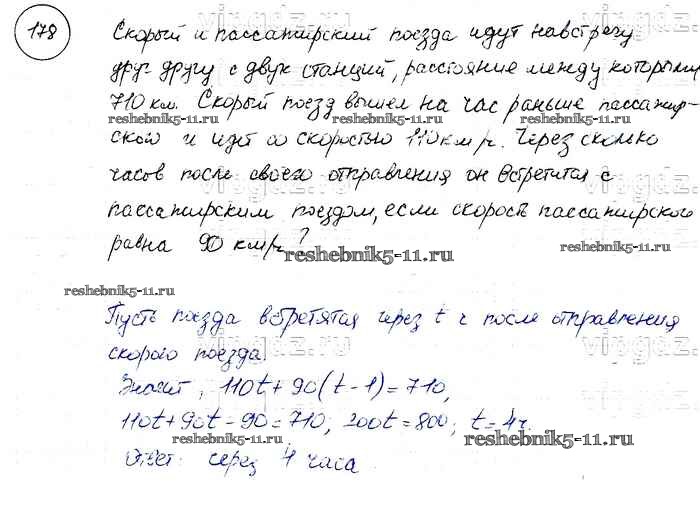 178
Скорый и пассажирский поезда идут навстречу
друг другу с двух станций, расстояние между которыми
710 км. Скорый поезд вышел на час раньше пассажир-
ского и идет со скоростью 110 км/ч. Через сколько
часов после своего отправления он встретится с
пассажирским поездом, если скорость пассажирского
равна 90 км/ч?
Пусть поезда встретятся через t ч после отправления
скорого поезда.
Значит, 110t + 90(t - 1) = 710,
110t + 90t - 90 = 710, 200t = 800, t = 4 ч.
Ответ: через 4 часа
reshebnik5-11.ru
reshebnik5-11.ru
reshebnik5-11.ru
reshebnik5-11.ru
reshebnik5-11.ru
reshebnik5-11.ru
reshebnik5-11.ru